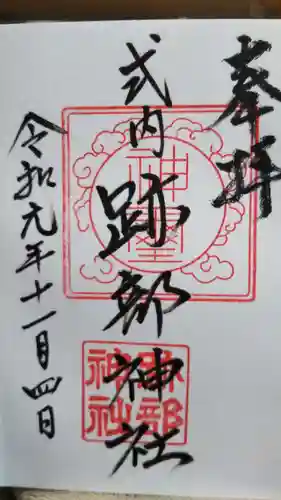 奉拝
式内
跡部神社
令和元年十一月四日
神璽
跡部
神社